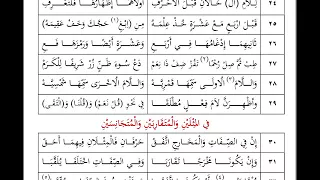 ٢٤ لِلَامِ (أَلْ) حَالَانِ قَبْلَ الْأَحْرُفِ أُولَاهُمَا إِظْهَارُهَا
٢٥ قَبْلَ ارْبَعٍ مَعْ عَشْرَةٍ خُذْ عِلْمَهُ مِنِ (ابْغِ (١) حَجَّكَ وَخَفْ عَقِيمَهُ)
٢٦ ثَانِيهِمَا إِدْغَامُهَا فِي أَرْبَعِ وَعَشْرَةٍ أَيْضًا وَرَمْزَهَا
٢٧ طِبْ ثُمَّ صِلْ رَحْمًا (٢) تَفُزْ ضِفْ ذَا نِعَمْ دَعْ سُوءَ ظَنٍّ زُرْ شَرِيفًا لِلْكَرَمْ
٢٨ وَاللَّامُ (٣) الْاُولَى سَمِّهَا قَمْرِيَّهْ وَاللَّامُ الْاُخْرَى سَمِّهَا شَمْسِيَّهْ
٢٩ وَأَظْهِرَنَّ لَامَ فِعْلٍ مُطْلَقَا فِي نَحْوِ (قُلْ نَعَمْ) وَ(قُلْنَا) وَ(الْتَقَى)
فِي الْمِثْلَيْنِ وَالْمُتَقَارِبَيْنِ وَالْمُتَجَانِسَيْنِ
٣٠ إِنْ فِي الصِّفَاتِ وَالْمَخَارِجِ اتَّفَقْ حَرْفَانِ فَالْمِثْلَانِ فِيهِمَا أَحَقْ
٣١ وَإِنْ يَكُونَا مَخْرَجًا تَقَارَبَا وَفِي الصِّفَاتِ اخْتَلَفَا يُلَقَّبَا